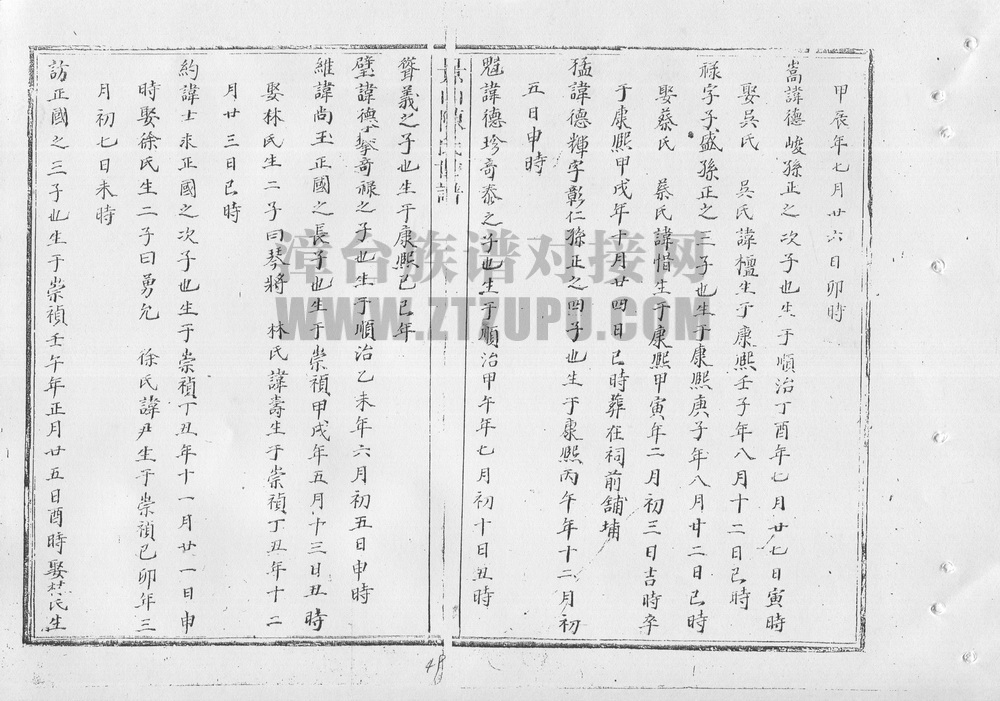 甲辰年七月廿六日卯時
嵩諱德峻孫正之次子也生于順治丁酉年七月廿七日寅時
娶吳氏 吳氏諱檀生于康熙壬子年八月十二日已時
祿字子盛孫正之三子也生于康熙庚子年八月廿二日已時
娶蔡氏 蔡氏諱惜生于康熙甲寅年二月初三日吉時卒
于康熙甲戌年十月廿四日已時葬在祠前舖埔
猛諱德輝字彰仁孫正之四子也生于康熙丙午年十二月初
五日申時
魁諱德珍奇泰之子也生于順治甲午年七月初十日丑時
義之子也生于康熙己已年
璧諱德奇祿之子也生于順治乙未年六月初五日申時
維諱尚玉正國之長子也生于崇禎甲戌年五月十三日丑時
娶林氏生二子曰琴將 林氏諱壽生于崇禎丁丑年十二
月廿三日已時
約諱士求正國之次子也生于崇禎丁丑年十一月廿一日申
時娶徐氏生二子曰勇允 徐氏諱尹生于崇禎已卯年三
月初七日未時
訪正國之三子也生于崇禎壬午年正月廿五日酉時娶林氏生
漳台族谱对接网
WWW.ZTZUPU.COM
48